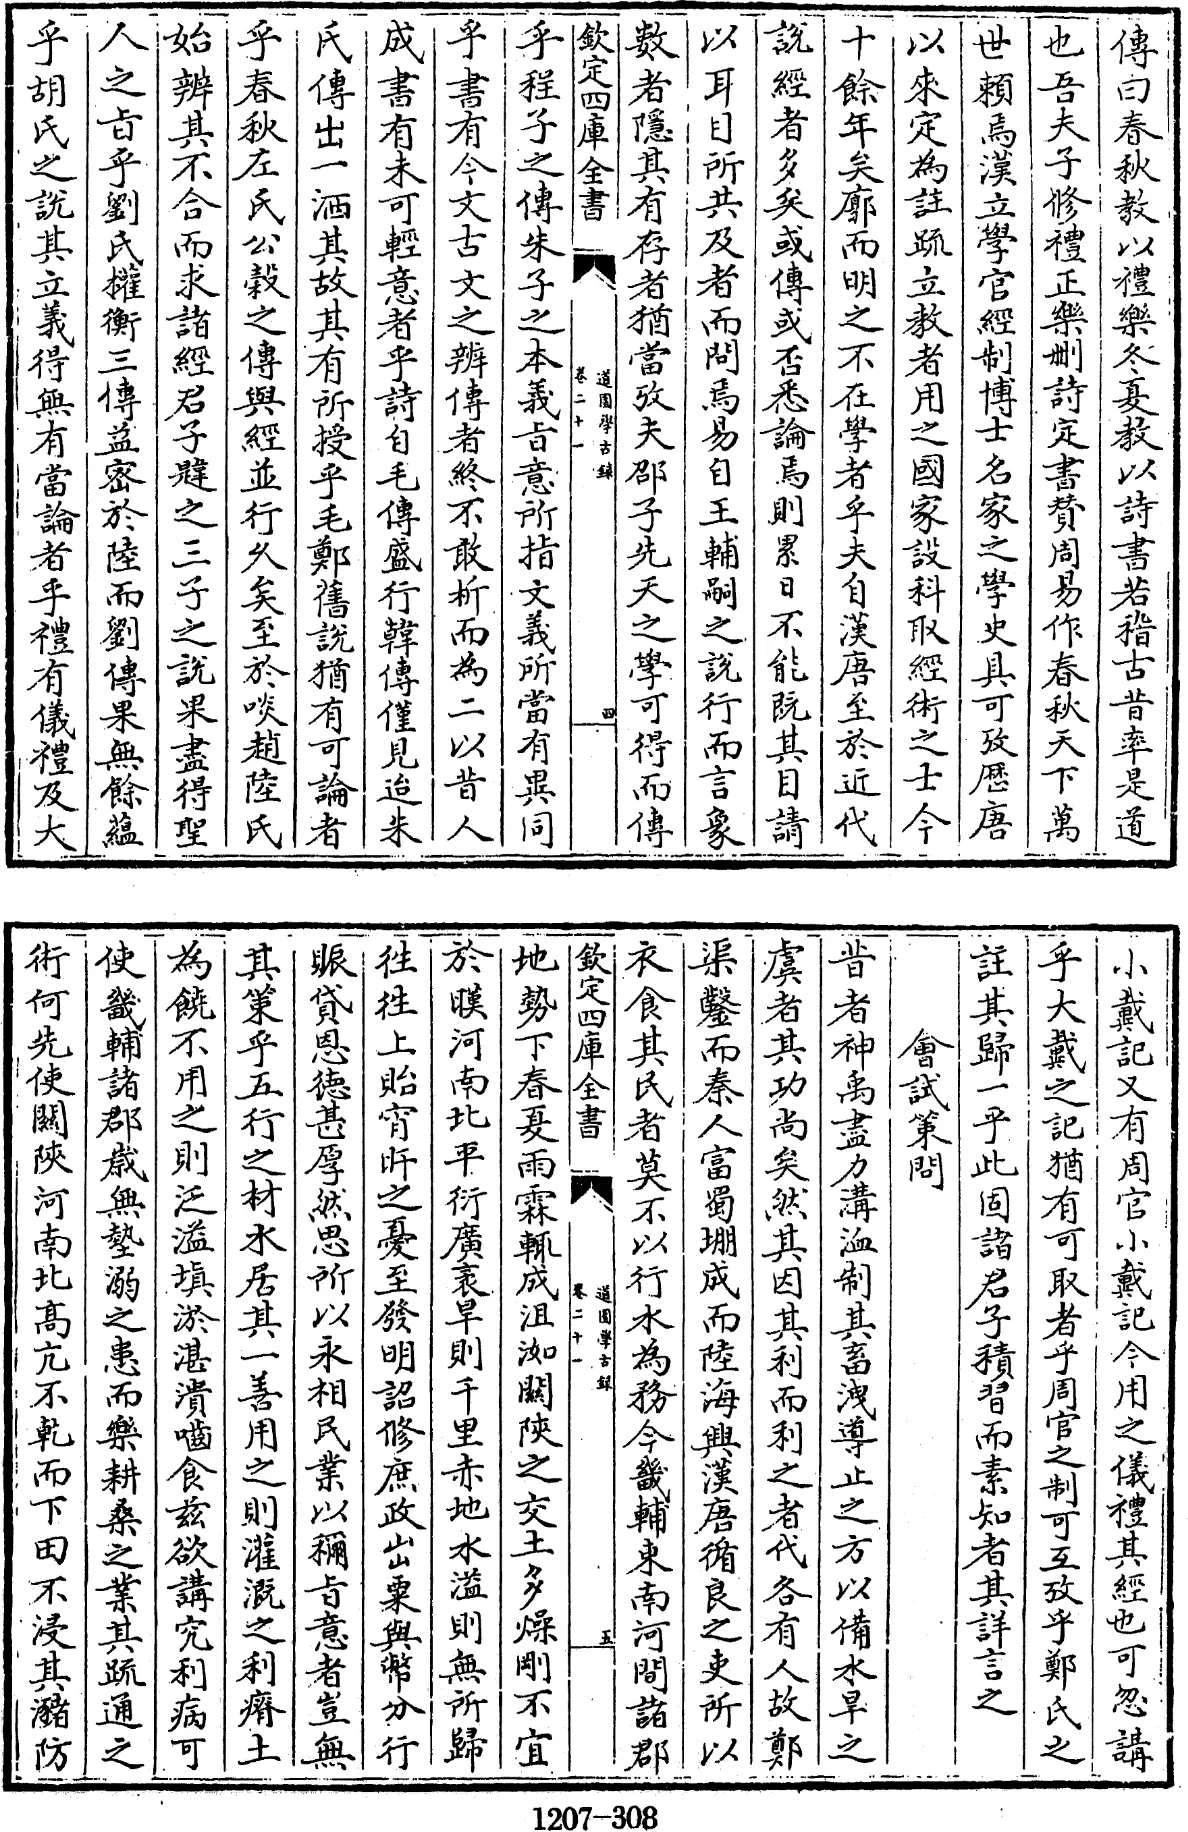 傳曰春秋教以禮樂冬夏教以詩書若稽古昔率是道
也吾夫子修禮正樂刪詩定書賛周易作春秋天下萬
世賴焉漢立學官經制博士名家之學史具可攷歴唐
以來定為註疏立教者用之國家設科取經術之士今
十餘年矣廓而明之不在學者乎夫自漢唐至於近代
説經者多矣或傳或否悉論焉則累日不能既其目請
以耳目所共及者而問焉易自王輔嗣之説行而言象
數者隱其有存者猶當攷夫邵子先天之學可得而傳
欽定四庫全書
道園學古録
卷二十一
四
乎程子之傳朱子之本義旨意所指文義所當有異同
乎書有今文古文之辨傳者終不敢析而為二以昔人
成書有未可輕意者乎詩自毛傳盛行韓傳僅見迨朱
氏傳出一洒其故其有所授乎毛鄭舊説猶有可論者
乎春秋左氏公穀之傳與經並行久矣至於啖趙陸氏
始辨其不合而求諸經君子韙之三子之説果盡得聖
人之旨乎劉氏權衡三傳益密於陸而劉傳果無餘蘊
乎胡氏之説其立義得無有當論者乎禮有儀禮及大
小戴記又有周官小戴記今用之儀禮其經也可忽講
乎大戴之記猶有可取者乎周官之制可互攷乎鄭氏之
註其歸一乎此固諸君子積習而素知者其詳言之
會試策問
昔者神禹盡力溝洫制其畜洩導止之方以備水旱之
虞者其功尚矣然其因其利而利之者代各有人故鄭
渠鑿而秦人富蜀堋成而陸海興漢唐循良之吏所以
衣食其民者莫不以行水為務今畿輔東南河間諸郡
欽定四庫全書
道園學古録
卷二十一
五
地勢下春夏雨霖輒成沮洳關陝之交土多燥剛不宜
於暵河南北平衍廣袤旱則千里赤地水溢則無所歸
往往上貽宵旰之憂至發明詔修庶政出粟與幣分行
賑貸恩德甚厚然思所以永相民業以稱旨意者豈無
其策乎五行之材水居其一善用之則灌溉之利瘠土
為饒不用之則泛溢填淤湛潰嚙食兹欲講究利病可
使畿輔諸郡歲無墊溺之患而樂耕桑之業其疏通之
術何先使關陝河南北高亢不乾而下田不浸其瀦防
1207-308